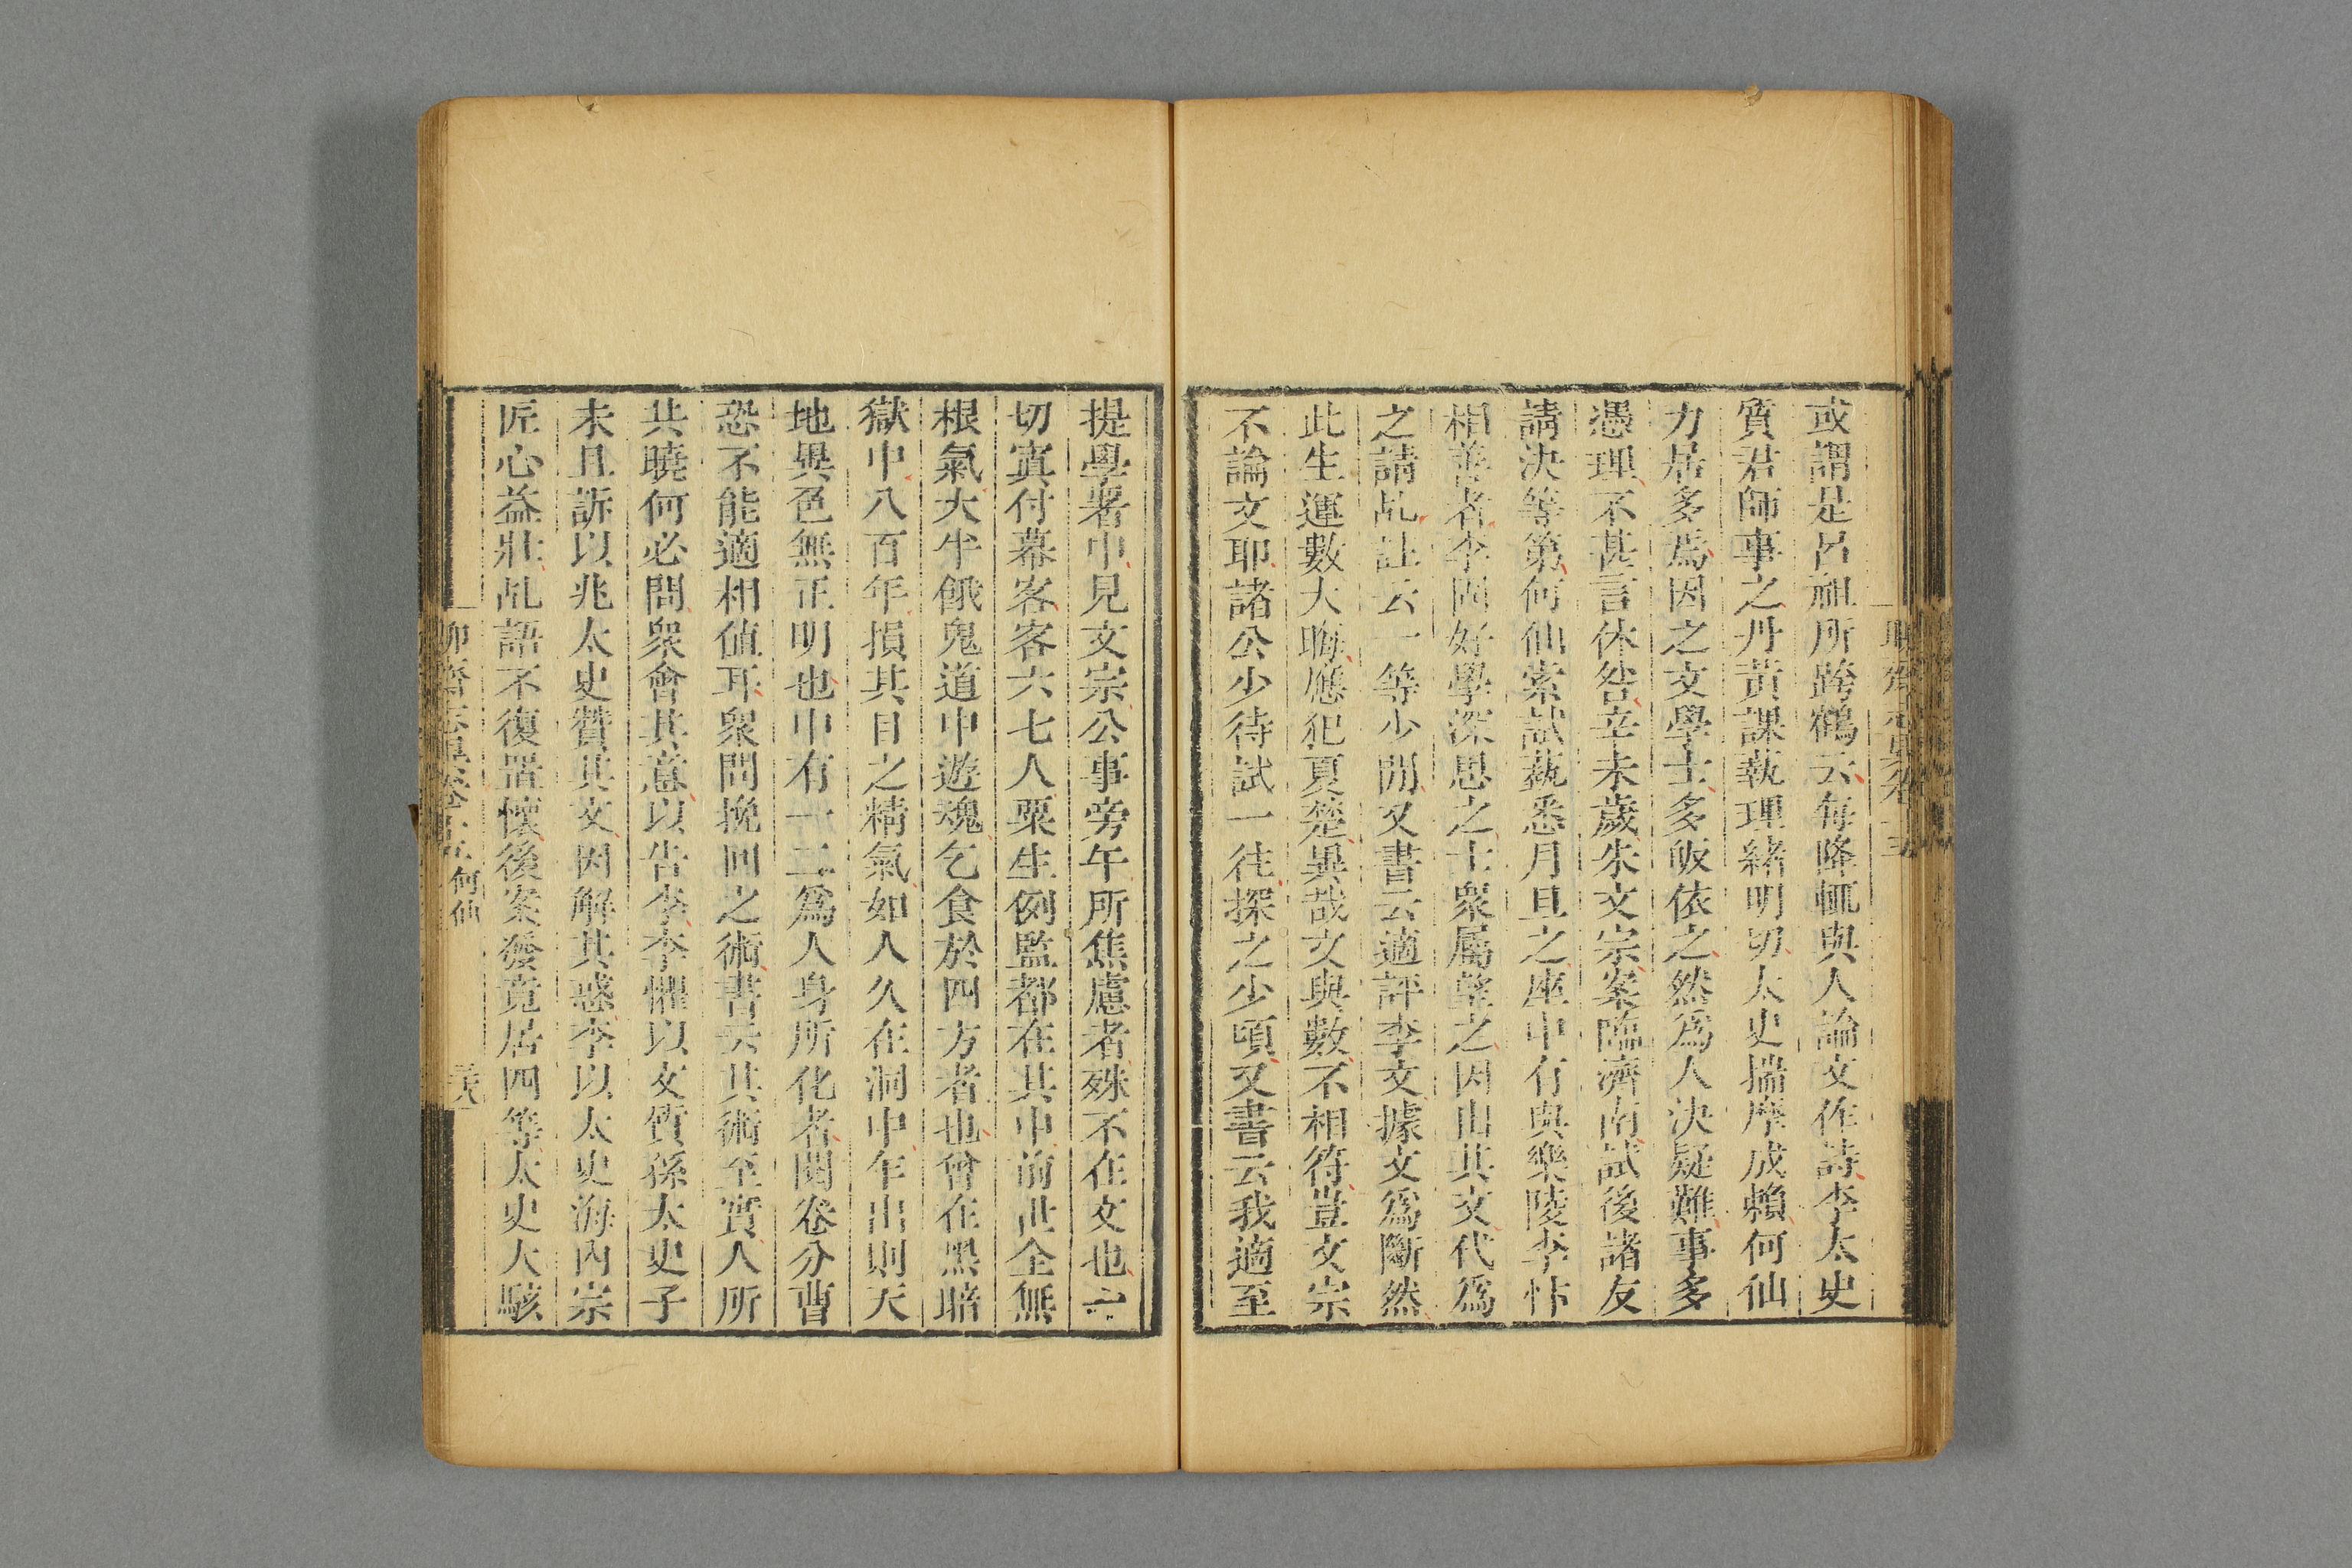 或謂是呂祖所跨鶴云每降輒與人論文作詩李太史
質君師事之丹黃課藝理緒明切太史揣摩成賴何仙
力居多焉因之文學士多皈依之然爲人決疑難事多
憑理不甚言休咎辛未歲朱文宗案臨濟南試後諸友
請決等第何仙索試藝悉月旦之座中有與樂陵李忭
相善者李固好學深思之士衆屬望之因出其文代爲
之請乩註云一等少間又書云適評李文據文爲斷然
此生運數大晦應犯夏楚異哉文與數不相符豈文宗
不論文耶諸公少待試一往探之少頃又書云我適至
提學署中見文宗公事旁午所焦慮者殊不在文也一
切寘付幕客客六七人粟生例監都在其中前世全無
根氣大半餓鬼道中遊魂乞食於四方者也曾在黑暗
獄中八百年損其目之精氣如人久在洞中乍出則天
地異色無正明也中有一二爲人身所化者閱卷分曹
恐不能適相值耳衆問挽回之術書云其術至實人所
共曉何必問衆會其意以告李李懼以文質孫太史子
未且訴以兆太史贊其文因解其惑李以太史海內宗
匠心益壯乩語不復置懷後案發竟居四等太史大駭
聊齋志異卷十五 何仙 三十八